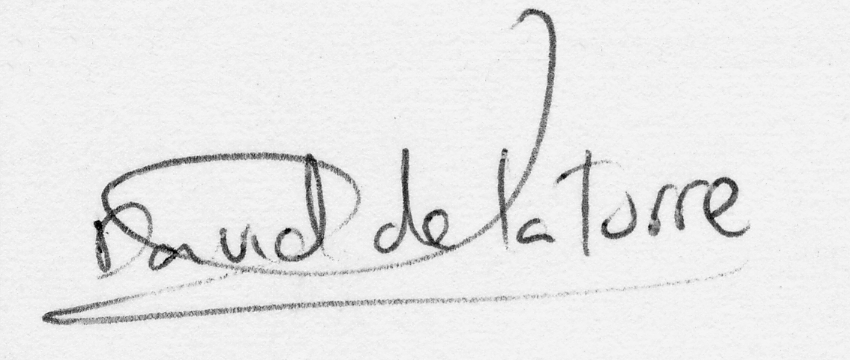 David de la Torre